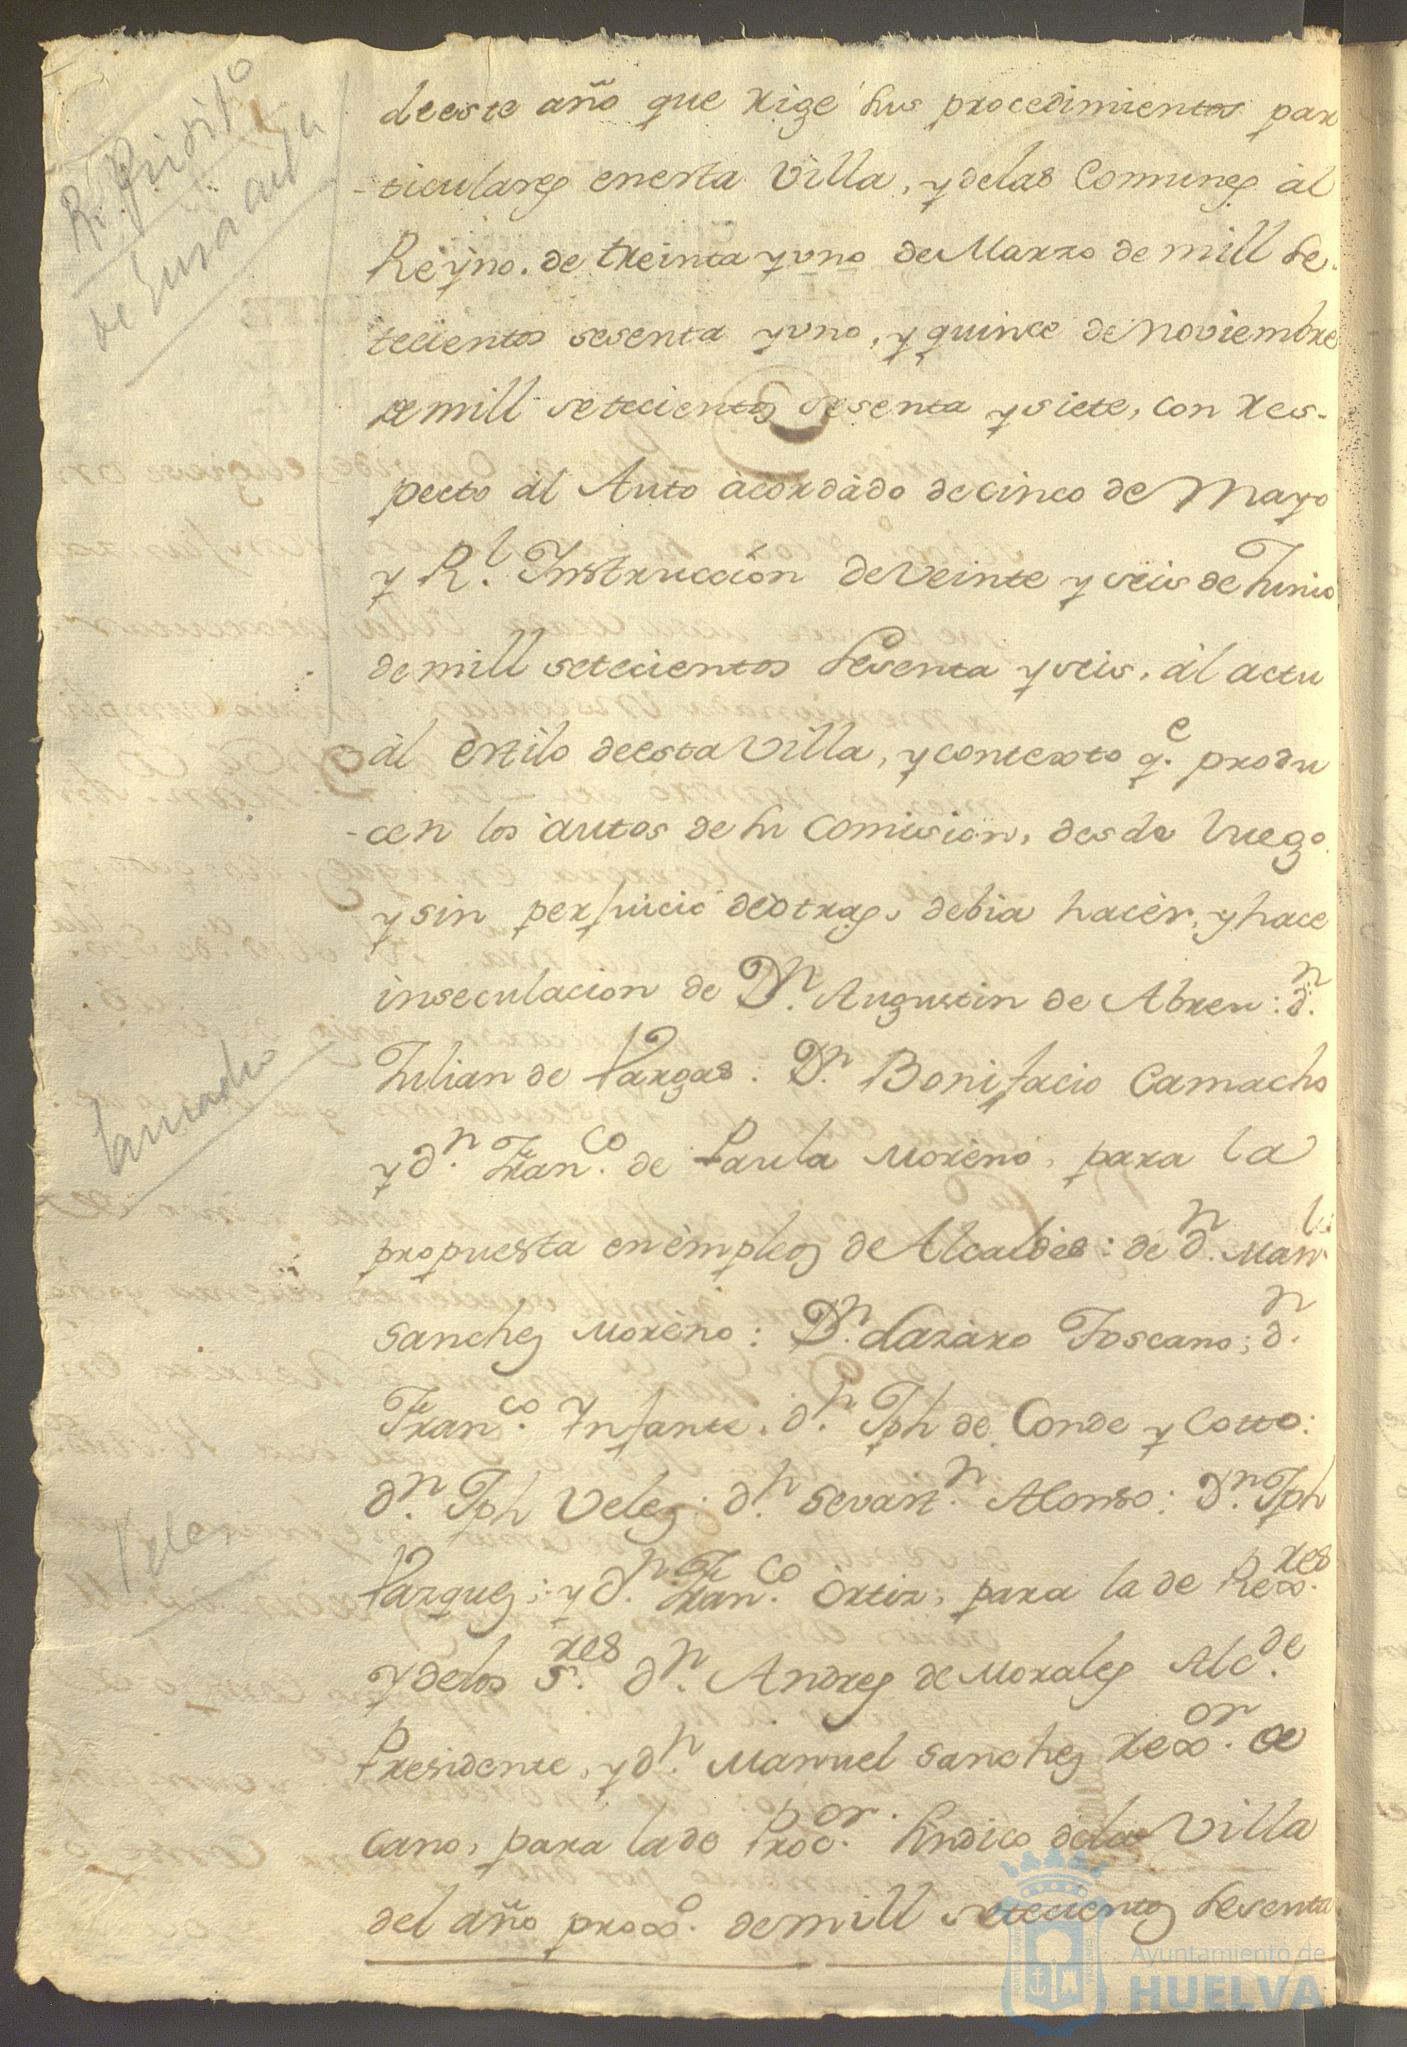 deeste año que rige sus procedimientos par
-ticulares enesta Villa, y delas Comunes àl
Reyno. de treinta y uno de Marzo de mill Se-
tecientos sesenta y uno, y quince de Noviembre
de mill setecientos sesenta y siete, con res-
pecto àl Auto àcordàdo de cinco de Mayo
y Rl. Instruccion de Veinte y seis de Junio
de mill setecientos Sesenta y seis, àl actu
àl estilo deesta Villa, y contexto qe. produ
-cen los àutos de su Comision, desde luego
y sin perjuicio deòtras, debia hacèr, y hace
inseculacion de Dn. Augustin de Abreu: dn.
Julian de Vargas: Dn. Bonifacio Camacho
y dn. Franco. de Paula Moreno, para la
propuesta en èmpleos de Alcaldes: de dn. Manl.
Sanchez Moreno: Dn. Lazaro Toscano; dn.
Franco. Infante, dn. Jph de Conde y Cotto:
dn. Jph Velez: dn. Sevastn. Alonso: Dn. Jph
Vazquez: y dn. Franco Òrtiz, para la de Rexres.
y delos Sres. dn. Andres de Morales Alcde.
Presidente, y dn. Manuel Sanchez rexor. de
cano, para la de Procor. Sindico dela Villa
del año proxo. de mill setecientos Sesenta
Velez
Ayuntamiento de
HUELVA